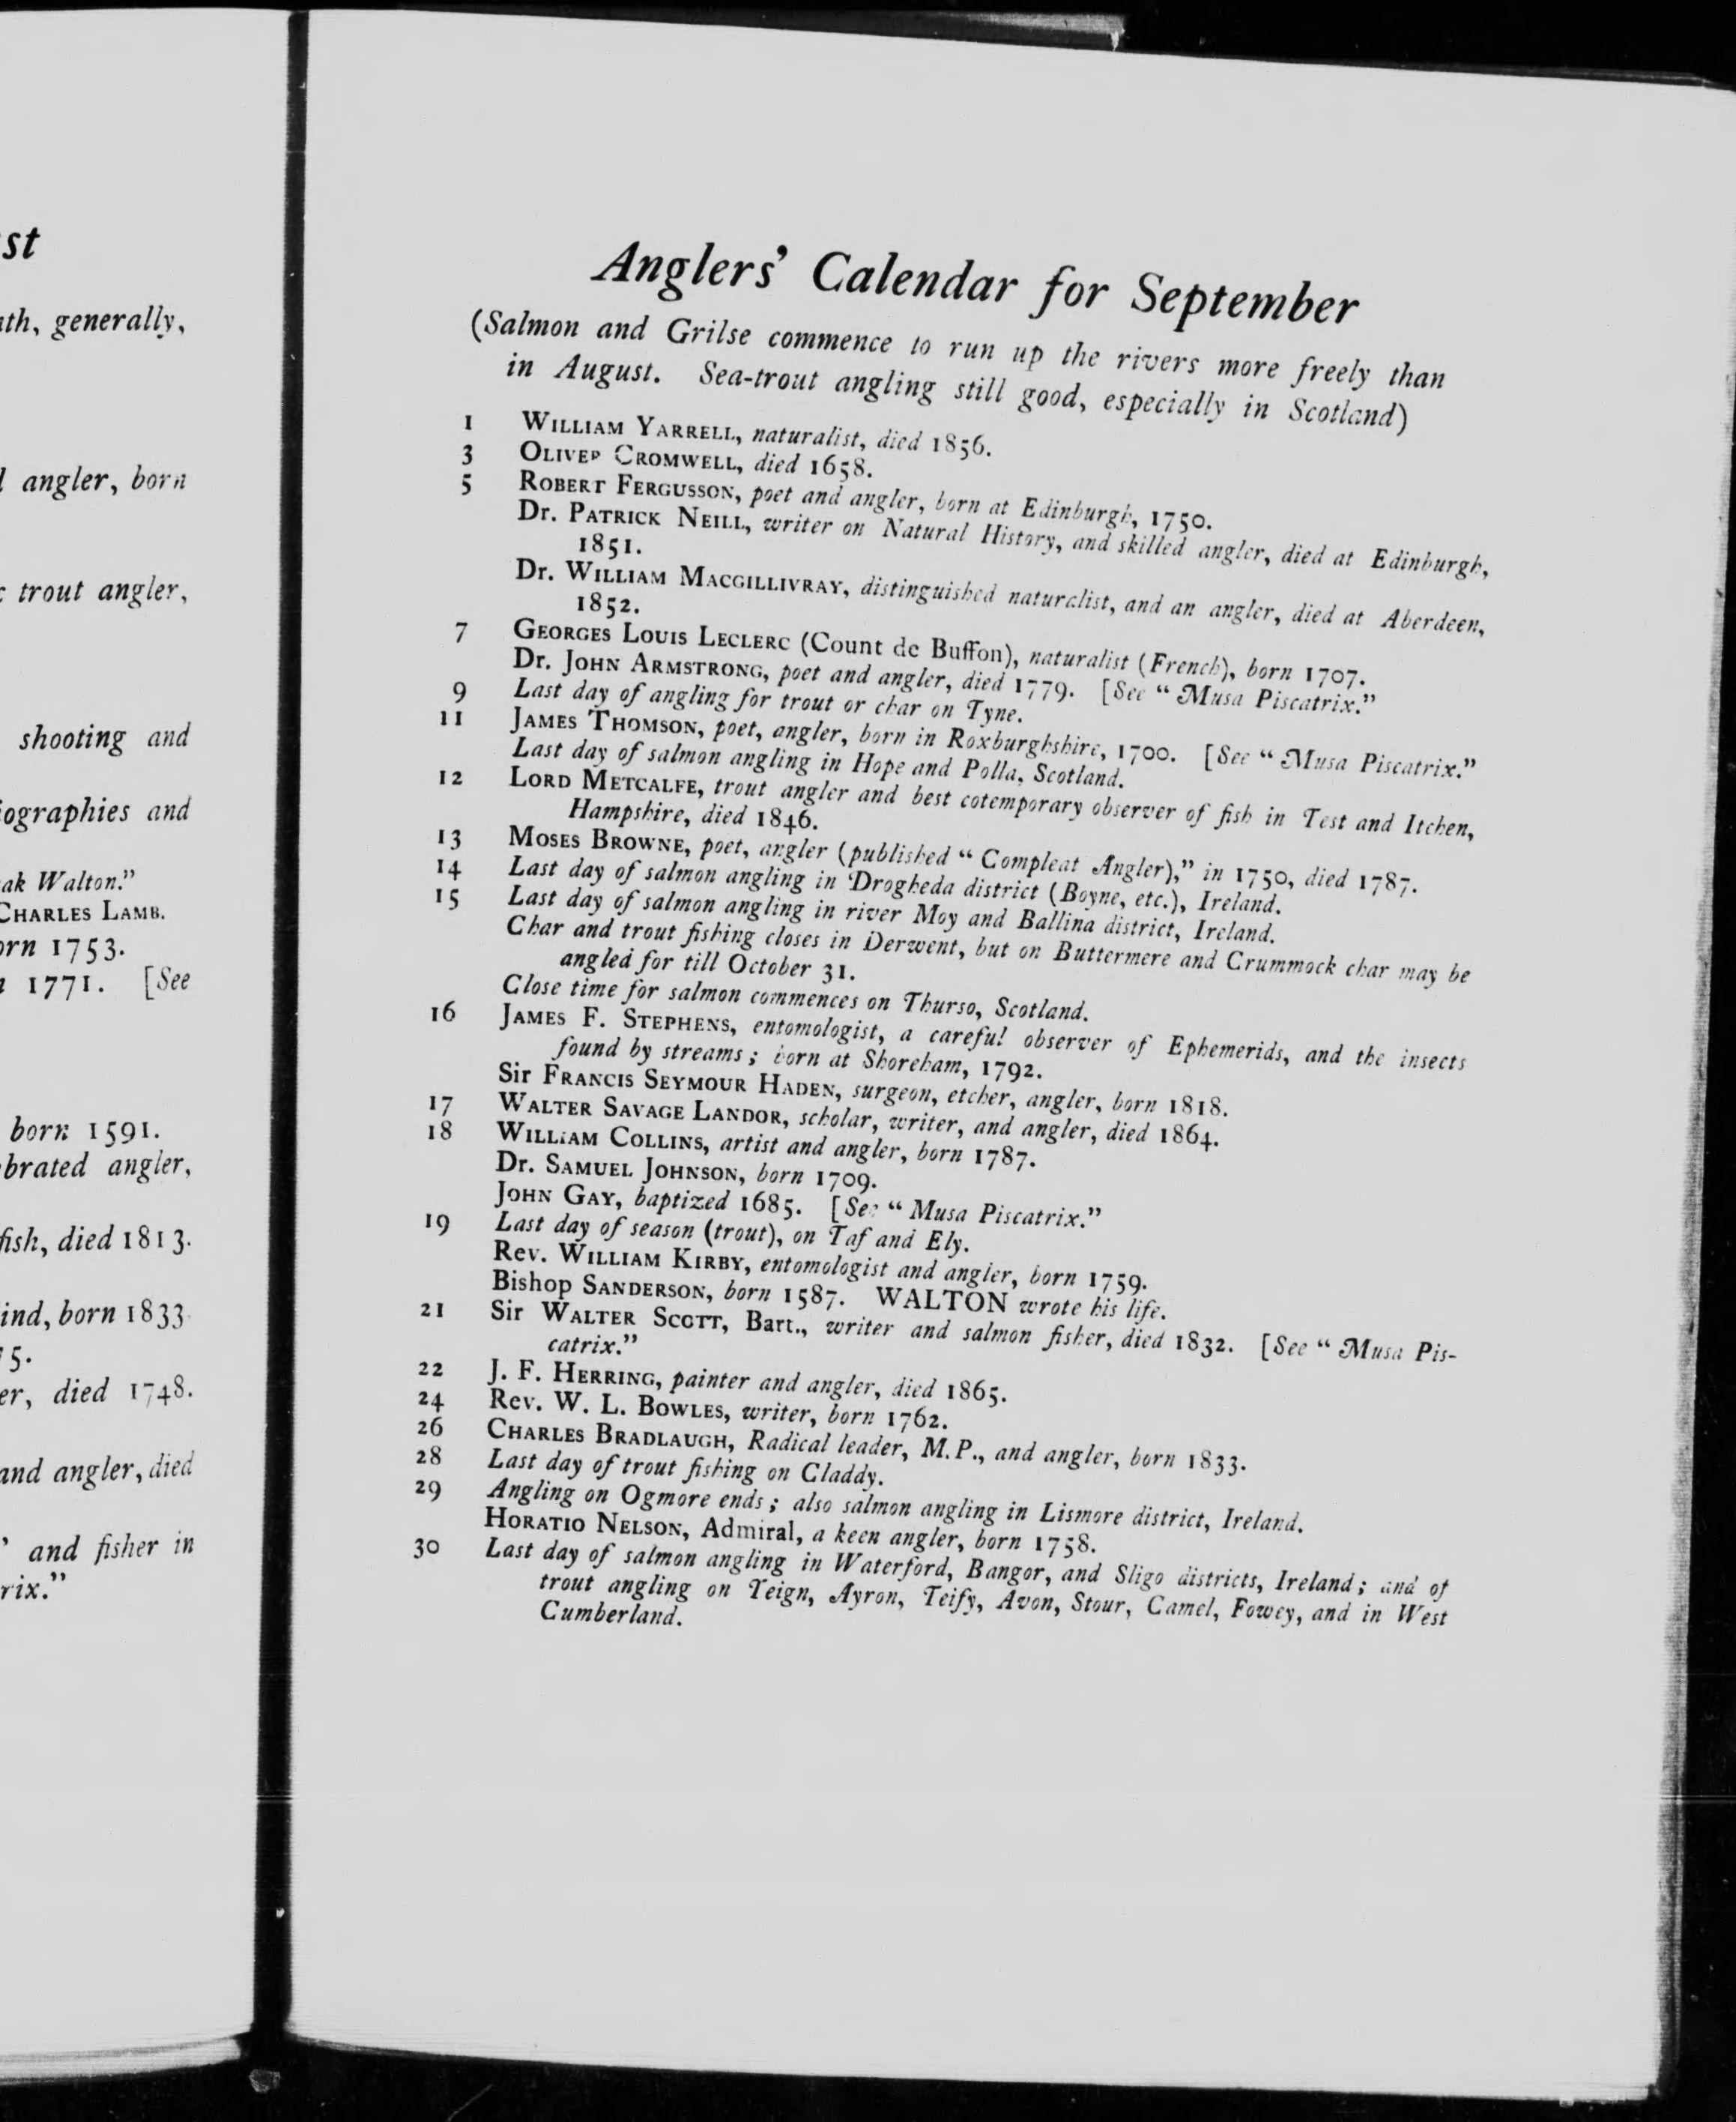 st
th, generally,
angler, born
trout angler,
shooting and
ographies and
ak Walton."
CHARLES LAMB.
orn 1753.
1771. [See
born 1591.
brated angler,
fish, died 1813.
ind, born 1833
5.
er, died 1748.
and angler, died
' and fisher in
rix."
Anglers' Calendar for September
(Salmon and Grilse commence to run up the rivers more freely than
in August. Sea-trout angling still good, especially in Scotland)
1 WILLIAM YARRELL, naturalist, died 1856.
3 OLIVER CROMWELL, died 1658.
5 ROBERT FERGUSSON, poet and angler, born at Edinburgh, 1750.
Dr. PATRICK NEILL, writer on Natural History, and skilled angler, died at Edinburgh,
1851.
Dr. WILLIAM MACGILLIVRAY, distinguished naturalist, and an angler, died at Aberdeen,
1852.
7 GEORGES LOUIS LECLERC (Count de Buffon), naturalist (French), born 1707.
Dr. JOHN ARMSTRONG, poet and angler, died 1779. [See "Musa Piscatrix."
9 Last day of angling for trout or char on Tyne.
11 JAMES THOMSON, poet, angler, born in Roxburghshire, 1700. [See "Musa Piscatrix."
Last day of salmon angling in Hope and Polla, Scotland.
12 LORD METCALFE, trout angler and best cotemporary observer of fish in Test and Itchen,
Hampshire, died 1846.
13 MOSES BROWNE, poet, angler (published "Compleat Angler)," in 1750, died 1787.
14 Last day of salmon angling in Drogheda district (Boyne, etc.), Ireland.
15 Last day of salmon angling in river Moy and Ballina district, Ireland.
Char and trout fishing closes in Derwent, but on Buttermere and Crummock char may be
angled for till October 31.
Close time for salmon commences on Thurso, Scotland.
16 JAMES F. STEPHENS, entomologist, a careful observer of Ephemerids, and the insects
found by streams; born at Shoreham, 1792.
Sir FRANCIS SEYMOUR HADEN, surgeon, etcher, angler, born 1818.
17 WALTER SAVAGE LANDOR, scholar, writer, and angler, died 1864.
18 WILLIAM COLLINS, artist and angler, born 1787.
Dr. SAMUEL JOHNSON, born 1709.
JOHN GAY, baptized 1685. [See "Musa Piscatrix."
19 Last day of season (trout), on Taf and Ely.
Rev. WILLIAM KIRBY, entomologist and angler, born 1759.
Bishop SANDERSON, born 1587. WALTON wrote his life.
21 Sir WALTER SCOTT, Bart., writer and salmon fisher, died 1832. [See "Musa Pis-
catrix."
22 J. F. HERRING, painter and angler, died 1865.
24 Rev. W. L. BOWLES, writer, born 1762.
26 CHARLES BRADLAUGH, Radical leader, M.P., and angler, born 1833.
28 Last day of trout fishing on Claddy.
29 Angling on Ogmore ends; also salmon angling in Lismore district, Ireland.
HORATIO NELSON, Admiral, a keen angler, born 1758.
30 Last day of salmon angling in Waterford, Bangor, and Sligo districts, Ireland; and of
trout angling on Teign, Ayron, Teify, Avon, Stour, Camel, Fowey, and in West
Cumberland.